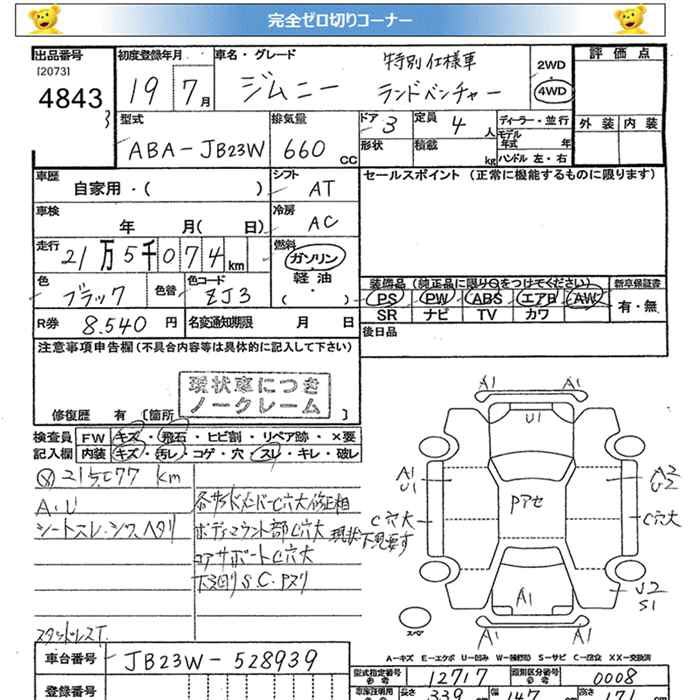 完全ゼロ切りコーナー
出品番号
[2073]
4843
初度登録年月
19 7月
車名・グレード
ジムニー
特別仕様車
ランドベンチャー
2WD
4WD
評価点
外装 内装
型式
ABA-JB23W
排気量
660 cc
ドア 3
定員 4人
形状
積載 kg
ディーラー・並行
モデル年式 年
ハンドル 左・右
車歴
自家用・( )
シフト
AT
セールスポイント (正常に機能するものに限ります)
車検
年 月( 日)
冷房
AC
走行
21万5千074km
燃料
ガソリン
・
軽油
( )
色
ブラック
色替
色コード
ZJ3
装備品 (純正品に限り○をつけてください)
新車保証書
PS PW ABS エアB AW
SR ナビ TV カワ
有・無
R券 8.540円
名変通知期限 月 日
後日品
注意事項申告欄(不具合内容等は具体的に記入して下さい)
現状車につき
ノークレーム
修復歴 有 [箇所 ]
検査員
記入欄
FW キズ・飛石・ヒビ割・リペア跡・×要
内装 キズ・汚レ・コゲ・穴・スレ・キレ・破レ
A.U
シートスレ.シワ.ヘタリ
各サイドメンバーC穴大修正相
ボディマウント部C穴大 現状下見要す
コアサポートC穴大
下廻りS.C.Pヌリ
スタッドレスT.
A1 A1
U1
A1
U1
A2
U2
Pアセ
C穴大
C穴大
A1
U2
S1
スペア
A1 A1
A-キズ E-エクボ U-凹み S-サビ C-腐食 XX-交換済
車台番号
JB23W-528939
型式指定番号
参考
12717
類別区分番号
参考
0008
登録番号
車庫証明用
長さ 339 cm
幅 147 cm
高さ 171 cm